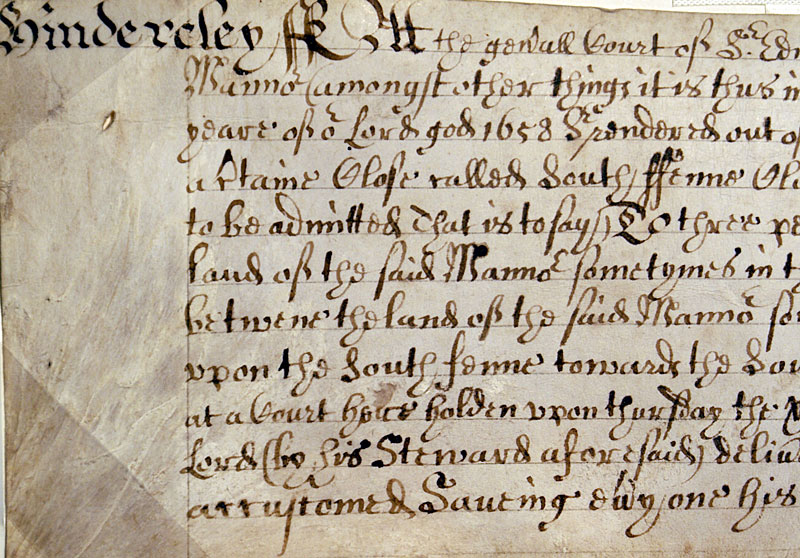 Hindercley ss At the gen'all Court of Sr. Ed
Mannor (amongst other things it is thus in
yeare of or Lord god 1658 Srrendered out of
a c'taine Close called South ffenne Clo
to be admitted That is to say) To three pe
land of the said Mannor sometymes in th
betwene the land of the said Mannor so
upon the South fenne towards the Sou
at a Court here holden upon thursday the
Lord (by his Steward aforesaid) deliv
accustomed Saveing ev'y one his